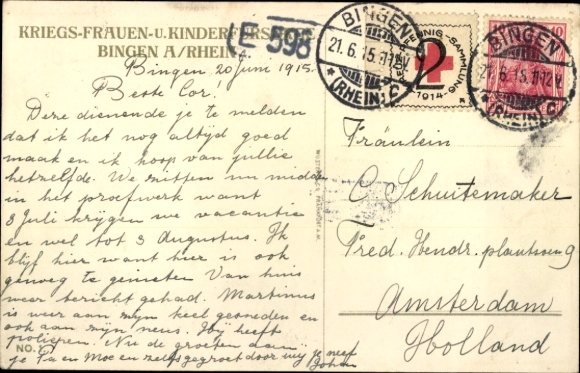 KRIEGS-FRAUEN-u. KINDERFÜRSORGE
BINGEN A/RHEIN.
E 596
BINGEN
21.6.15. 11-12 V.
(RHEIN) C
PFENNIG-SAMMLUNG
2
1914
10
BINGEN
21.6.15. 11-12 V.
(RHEIN) C
Bingen, 20 Juni 1915.
Beste Cor!
Deze dienende je te melden
dat ik het nog altijd goed
maak en ik hoop van jullie
hetzelfde. We zitten nu midden
in het proefwerk want
3 Juli krijgen we vacantie
en wel tot 3 Augustus. Ik
blijf hier want hier is ook
genoeg te genieten. Van huis
weer bericht gehad. Martinus
is weer aan zijn keel gesneden en
ook aan zijn neus. Hij heeft
poliepen. Nu de groeten aan
je Pa en Moe en zelf gegroet door mij je neef
Johan
NO.
Fräulein
C Schuitemaker
Fred. Hendr. plantsoen 9
Amsterdam
Holland